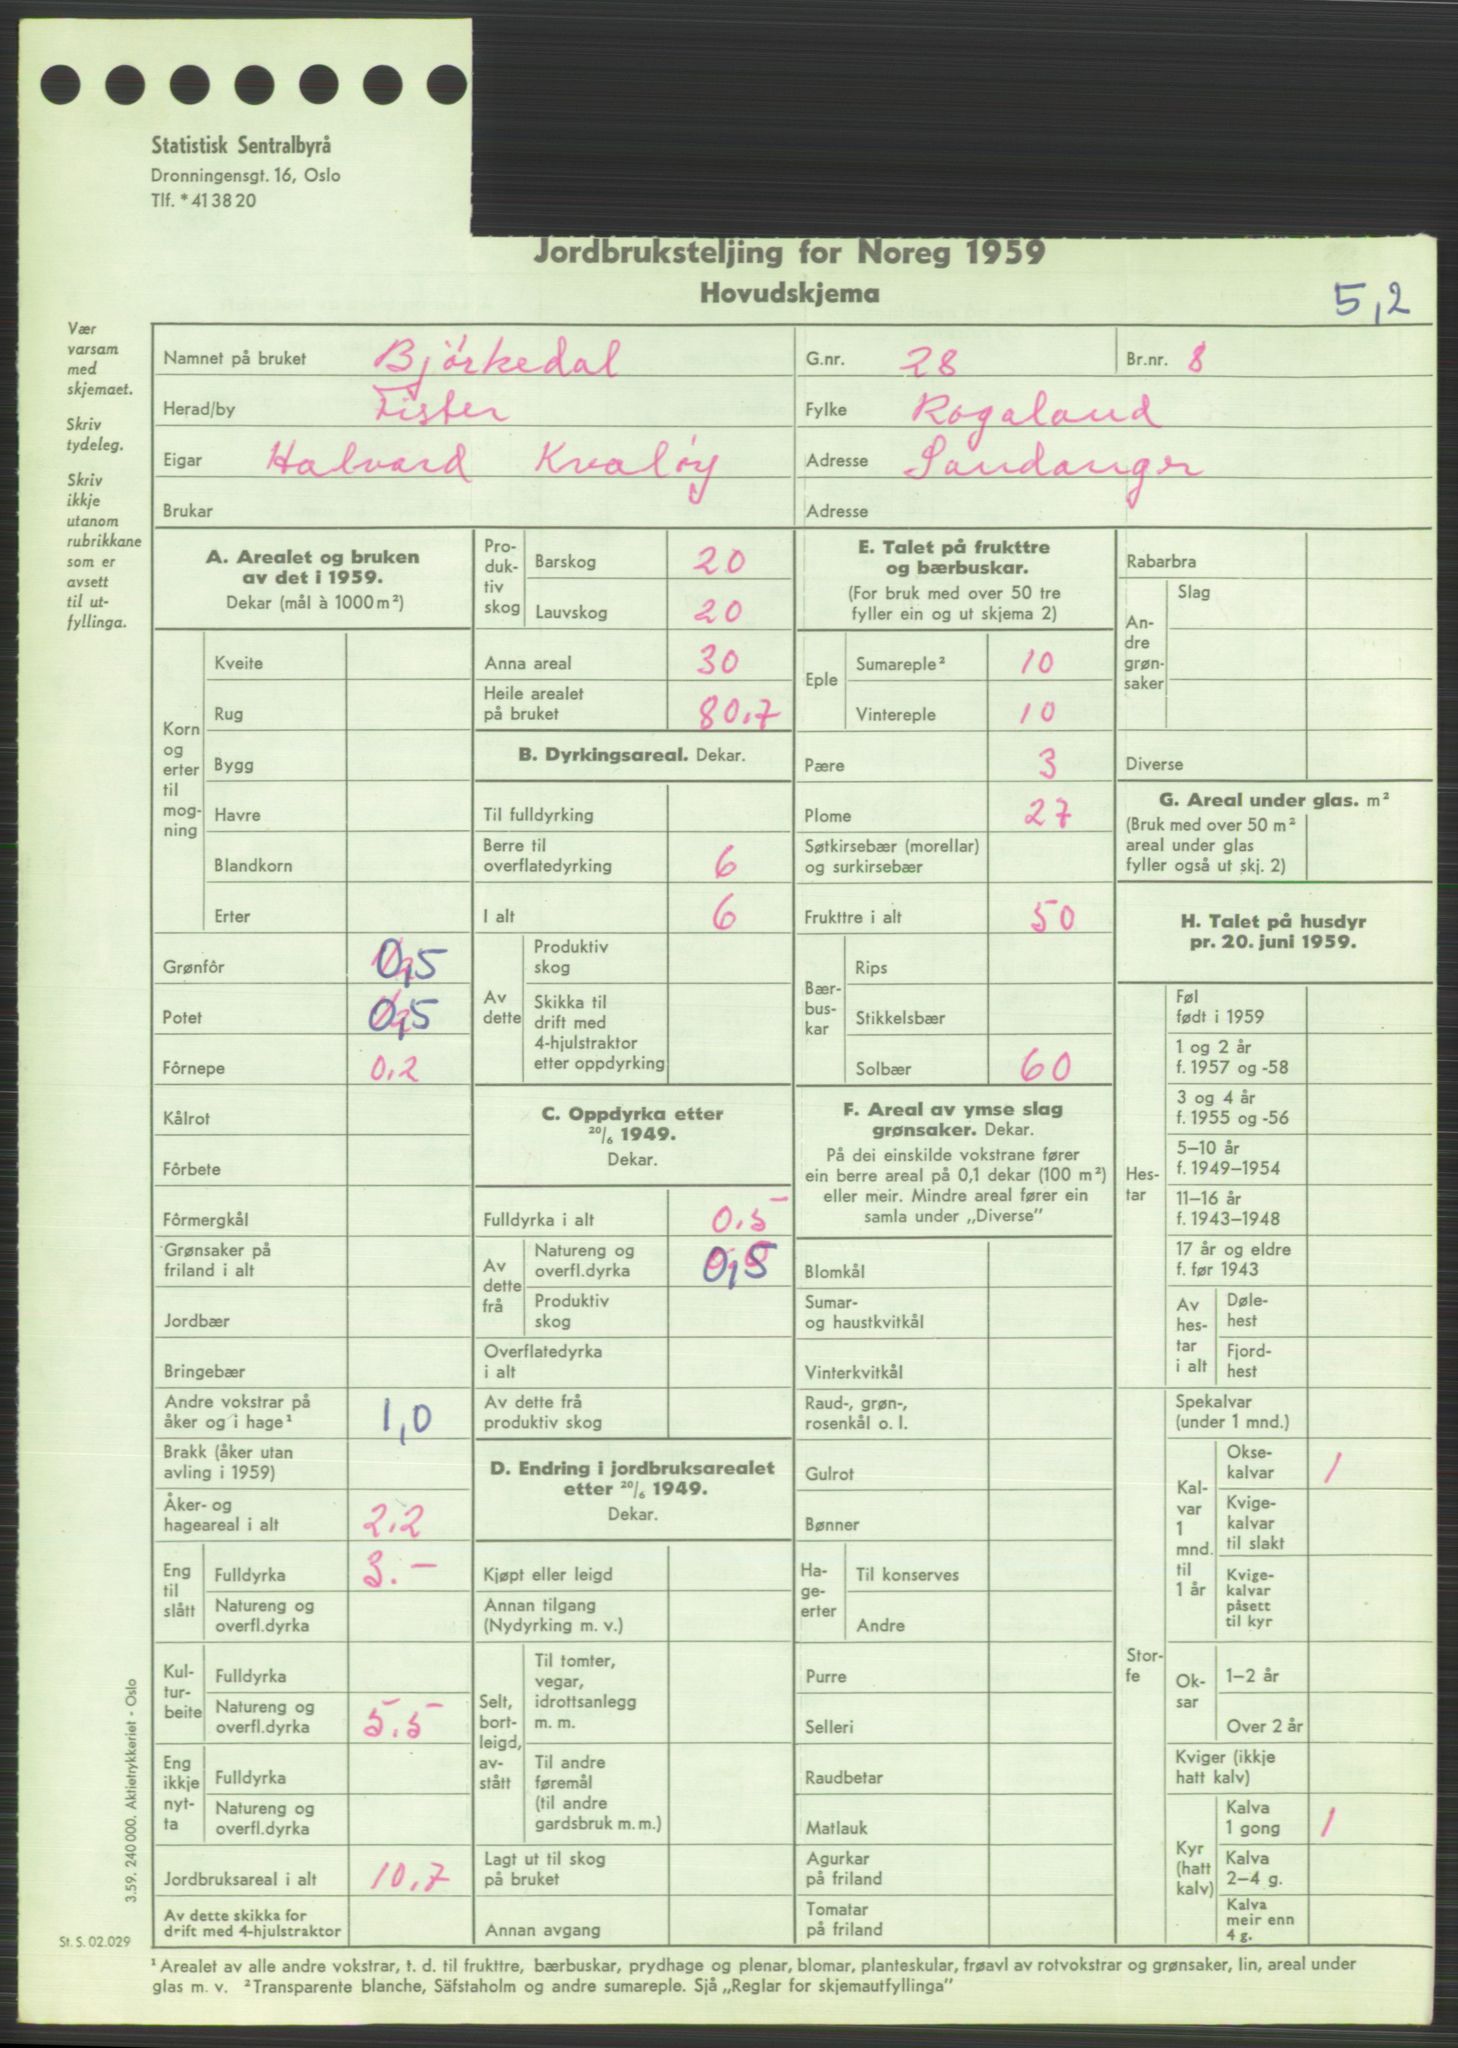 Statistisk Sentralbyrå
Dronningensgt. 16, Oslo
Tlf. * 41 38 20
Jordbruksteljing for Noreg 1959
Hovudskjema
5,2
Vær
varsam
med
skjemaet.
Skriv
tydeleg.
Skriv
ikkje
utanom
rubrikkane
som er
avsett
til ut-
fyllinga.
Namnet på bruket Bjørkedal G.nr. 28 Br.nr. 8
Herad/by Fister Fylke Rogaland
Eigar Halvard Kvaløy Adresse Sandanger
Brukar Adresse
A. Arealet og bruken
av det i 1959.
Dekar (mål à 1000 m²)
Korn
og
erter
til
mog-
ning
Kveite
Rug
Bygg
Havre
Blandkorn
Erter
Grønfôr 0,5
Potet 0,5
Fôrnepe 0,2
Kålrot
Fôrbete
Fôrmergkål
Grønsaker på
friland i alt
Jordbær
Bringebær
Andre vokstrar på
åker og i hage¹ 1,0
Brakk (åker utan
avling i 1959)
Åker- og
hageareal i alt 2,2
Eng
til
slått
Fulldyrka 3.-
Natureng og
overfl.dyrka
Kul-
tur-
beite
Fulldyrka
Natureng og
overfl.dyrka 5,5
Eng
ikkje
nyt-
ta
Fulldyrka
Natureng og
overfl.dyrka
Jordbruksareal i alt 10,7
Av dette skikka for
drift med 4-hjulstraktor
Pro-
duk-
tiv
skog
Barskog 20
Lauvskog 20
Anna areal 30
Heile arealet
på bruket 80,7
B. Dyrkingsareal. Dekar.
Til fulldyrking
Berre til
overflatedyrking 6
I alt 6
Av
dette
Produktiv
skog
Skikka til
drift med
4-hjulstraktor
etter oppdyrking
C. Oppdyrka etter
20/6 1949.
Dekar.
Fulldyrka i alt 0,5
Av
dette
frå
Natureng og
overfl.dyrka 0,5
Produktiv
skog
Overflatedyrka
i alt
Av dette frå
produktiv skog
D. Endring i jordbruksarealet
etter 20/6 1949.
Dekar.
Kjøpt eller leigd
Annan tilgang
(Nydyrking m. v.)
Selt,
bort-
leigd,
av-
stått
Til tomter,
vegar,
idrottsanlegg
m. m.
Til andre
føremål
(til andre
gardsbruk m. m.)
Lagt ut til skog
på bruket
Annan avgang
E. Talet på frukttre
og bærbuskar.
(For bruk med over 50 tre
fyller ein og ut skjema 2)
Eple
Sumareple² 10
Vintereple 10
Pære 3
Plome 27
Søtkirsebær (morellar)
og surkirsebær
Frukttre i alt 50
Bær-
bus-
kar
Rips
Stikkelsbær
Solbær 60
F. Areal av ymse slag
grønsaker. Dekar.
På dei einskilde vokstrane fører
ein berre areal på 0,1 dekar (100 m²)
eller meir. Mindre areal fører ein
samla under „Diverse”
Blomkål
Sumar-
og haustkvitkål
Vinterkvitkål
Raud-, grøn-,
rosenkål o. l.
Gulrot
Bønner
Ha-
ge-
erter
Til konserves
Andre
Purre
Selleri
Raudbetar
Matlauk
Agurkar
på friland
Tomatar
på friland
Rabarbra
An-
dre
grøn-
saker
Slag
Diverse
G. Areal under glas. m²
(Bruk med over 50 m²
areal under glas
fyller også ut skj. 2)
H. Talet på husdyr
pr. 20. juni 1959.
Hes-
tar
Føl
født i 1959
1 og 2 år
f. 1957 og -58
3 og 4 år
f. 1955 og -56
5–10 år
f. 1949–1954
11–16 år
f. 1943–1948
17 år og eldre
f. før 1943
Av
hes-
tar
i alt
Døle-
hest
Fjord-
hest
Stor-
fe
Spekalvar
(under 1 mnd.)
Kal-
var
1
mnd.
til
1 år
Okse-
kalvar 1
Kvige-
kalvar
til slakt
Kvige-
kalvar
påsett
til kyr
Ok-
sar
1–2 år
Over 2 år
Kviger (ikkje
hatt kalv)
Kyr
(hatt
kalv)
Kalva
1 gong 1
Kalva
2–4 g.
Kalva
meir enn
4 g.
3.59. 240 000. Aktietrykkeriet - Oslo
St. S. 02.029
¹ Arealet av alle andre vokstrar, t. d. til frukttre, bærbuskar, prydhage og plenar, blomar, planteskular, frøavl av rotvokstrar og grønsaker, lin, areal under
glas m. v. ² Transparente blanche, Säfstaholm og andre sumareple. Sjå „Reglar for skjemautfyllinga”